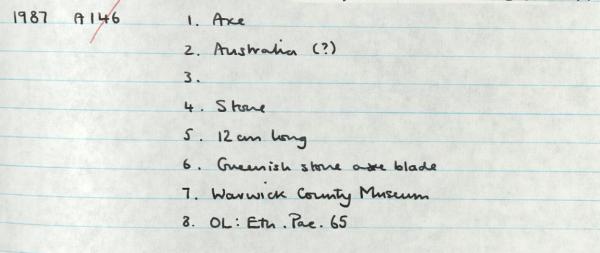 1987 A146 1. Axe
2. Australia (?)
3.
4. Stone
5. 12 cm long
6. Greenish stone axe blade
7. Warwick County Museum
8. OL: Eth. Pac. 65